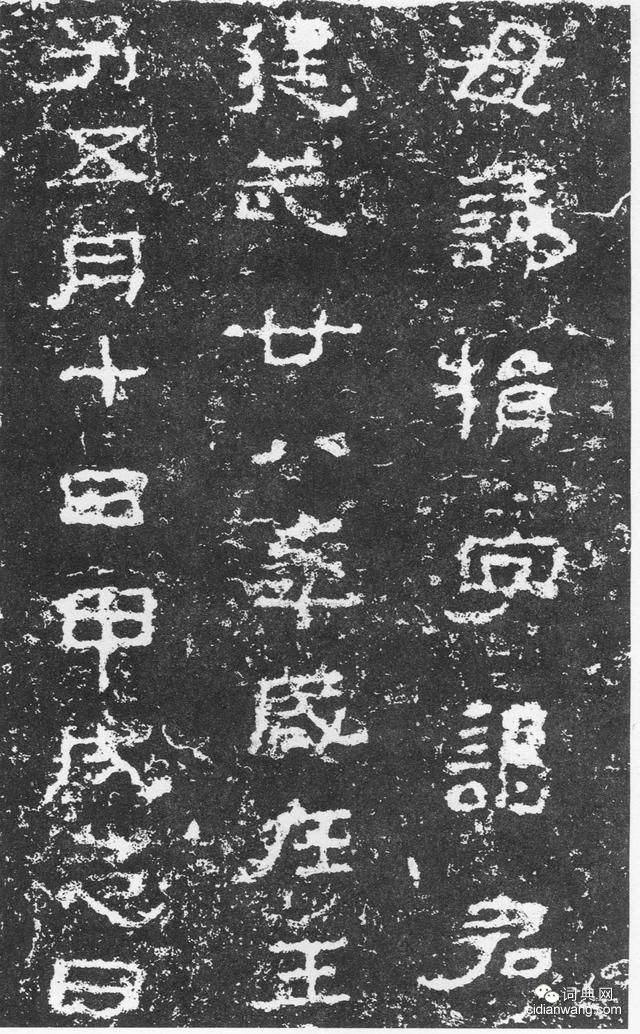 母諱捐字謁君
建武廿八年歲在壬
子五月十日甲戌忌日
词典网
cidianwang.com